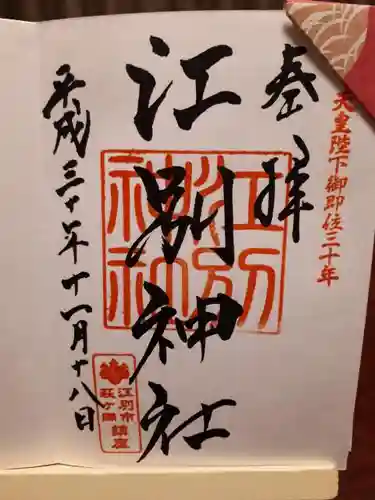 天皇陛下御即位三十年
奉拝
江別神社
江別
神社
平成三十年十一月十八日
江別市
萩ヶ岡
鎮座